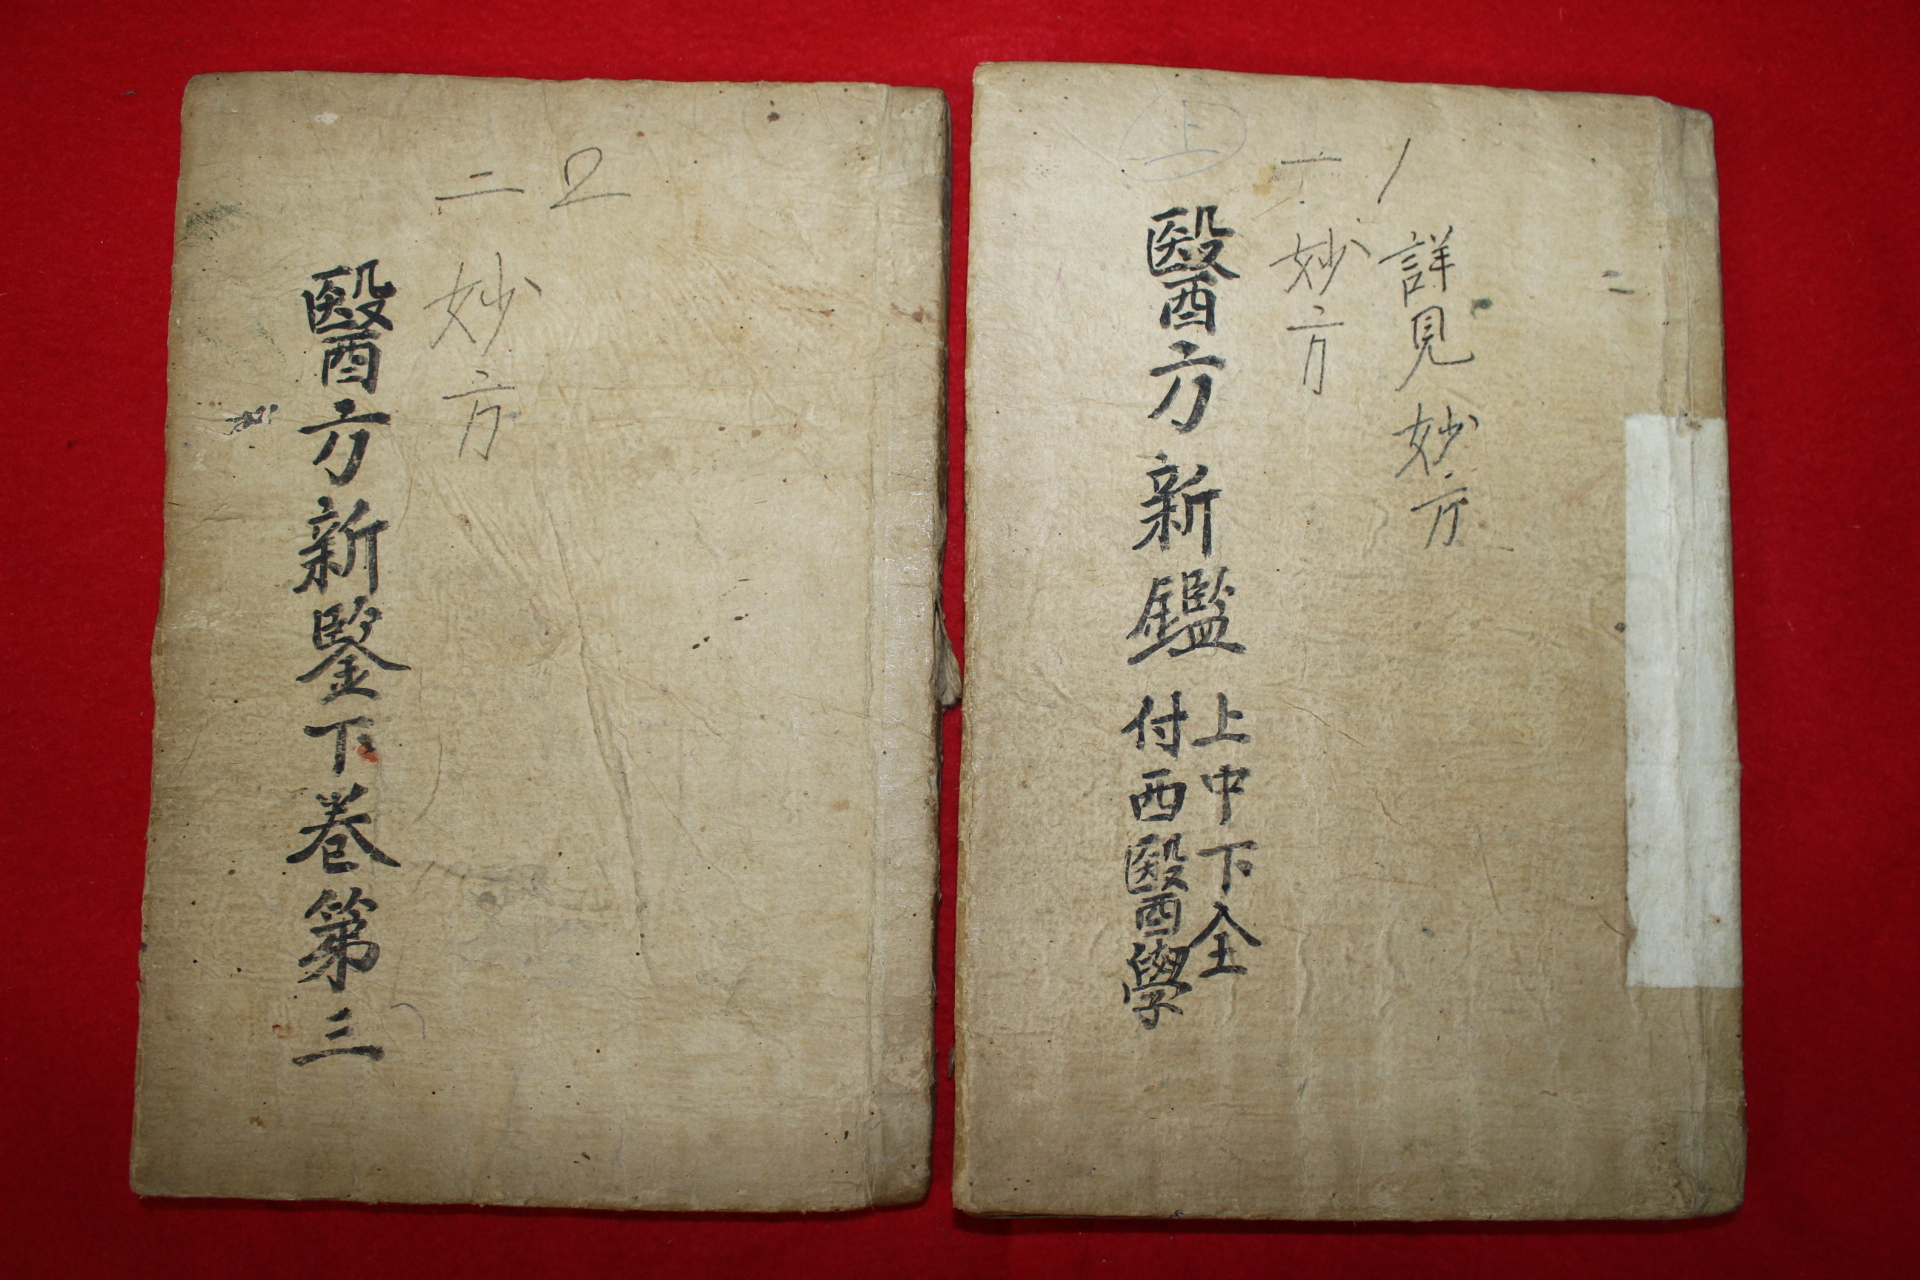 2
二
妙方
醫方新鋻下巻第三
1
詳見妙方
二
一
妙方
上
醫方新鑑
上中下全
付西醫學